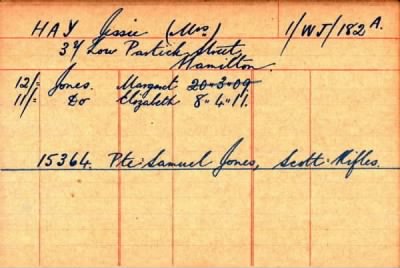 HAY Jessie (Mrs) 1/WJ/182 A.
34 Low Patrick Street,
Hamilton.
12/= Jones. Margaret 20-3-09
11/= do Elizabeth 8-4-11.
15364. Pte. Samuel Jones, Scott. Rifles.